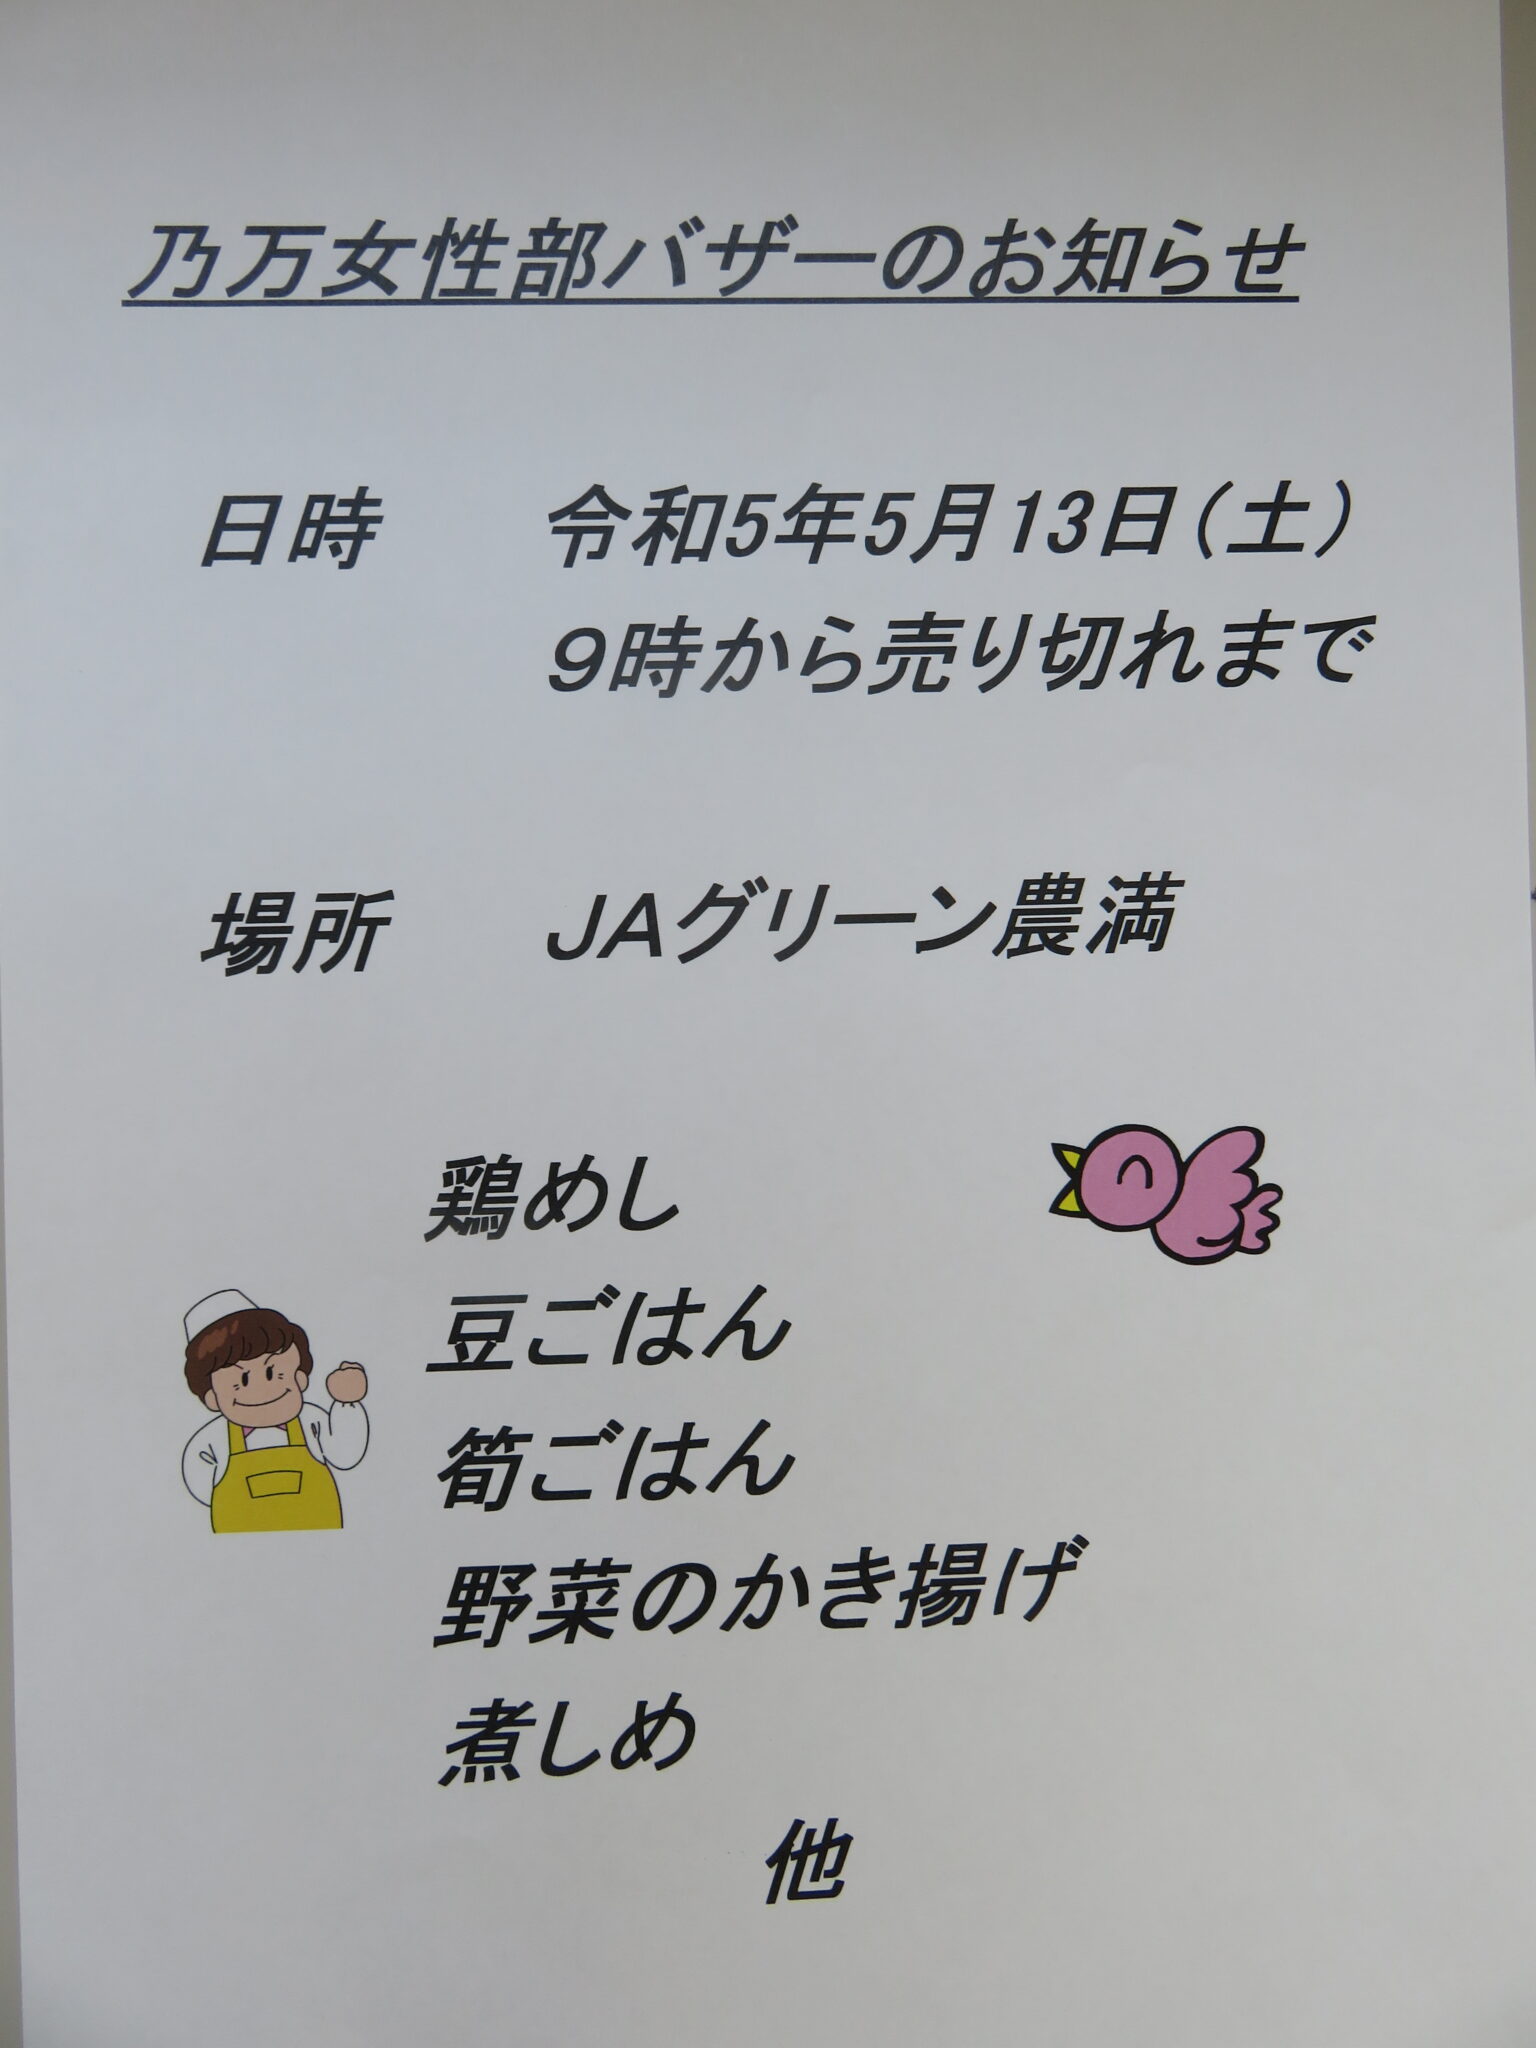 乃万女性部バザーのお知らせ
日時　令和5年5月13日（土）
９時から売り切れまで
場所　ＪＡグリーン農満
鶏めし
豆ごはん
筍ごはん
野菜のかき揚げ
煮しめ
他